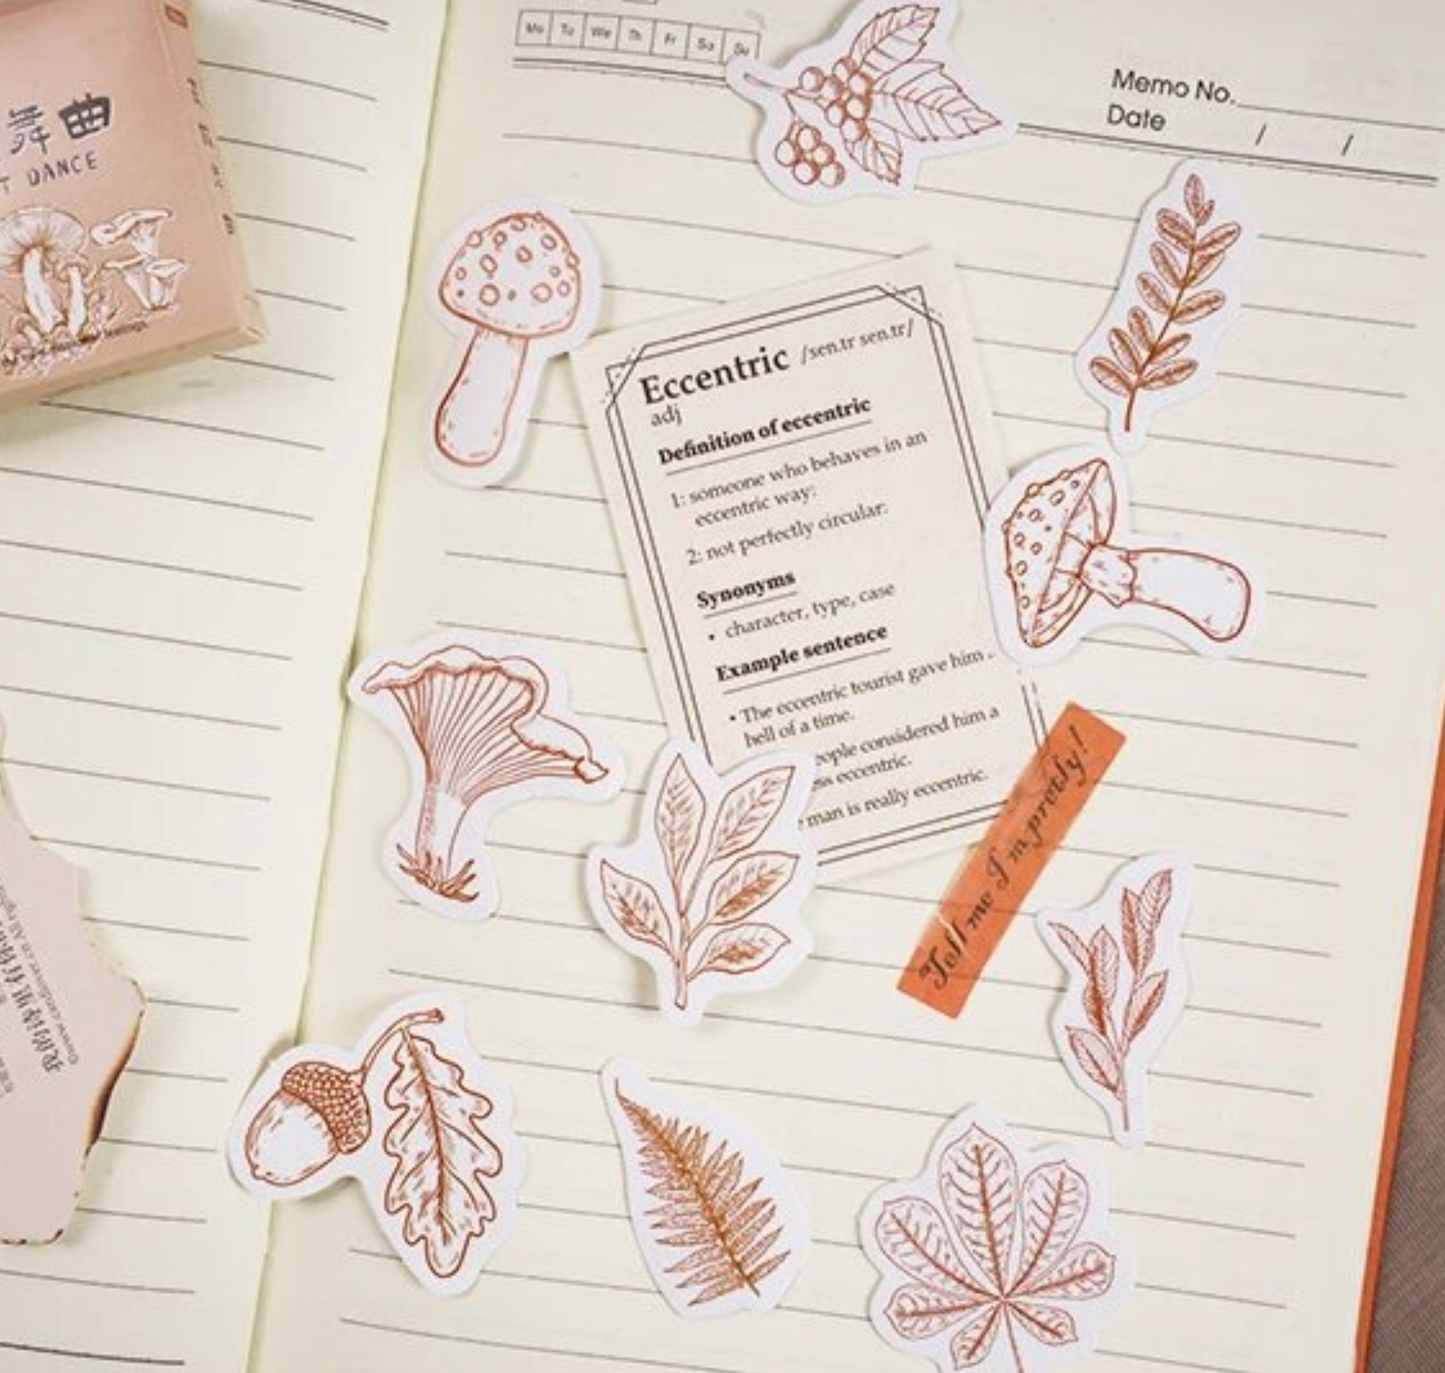 舞曲
T DANCE
Mo Tu We Th Fr Sa Su
Memo No.
Date / /
Eccentric /sen.tr sen.tr/
adj
Definition of eccentric
1: someone who behaves in an
eccentric way:
2: not perfectly circular:
Synonyms
• character, type, case
Example sentence
• The eccentric tourist gave him
hell of a time.
eople considered him a
ess eccentric.
man is really eccentric.
"Tell me I'm pretty!